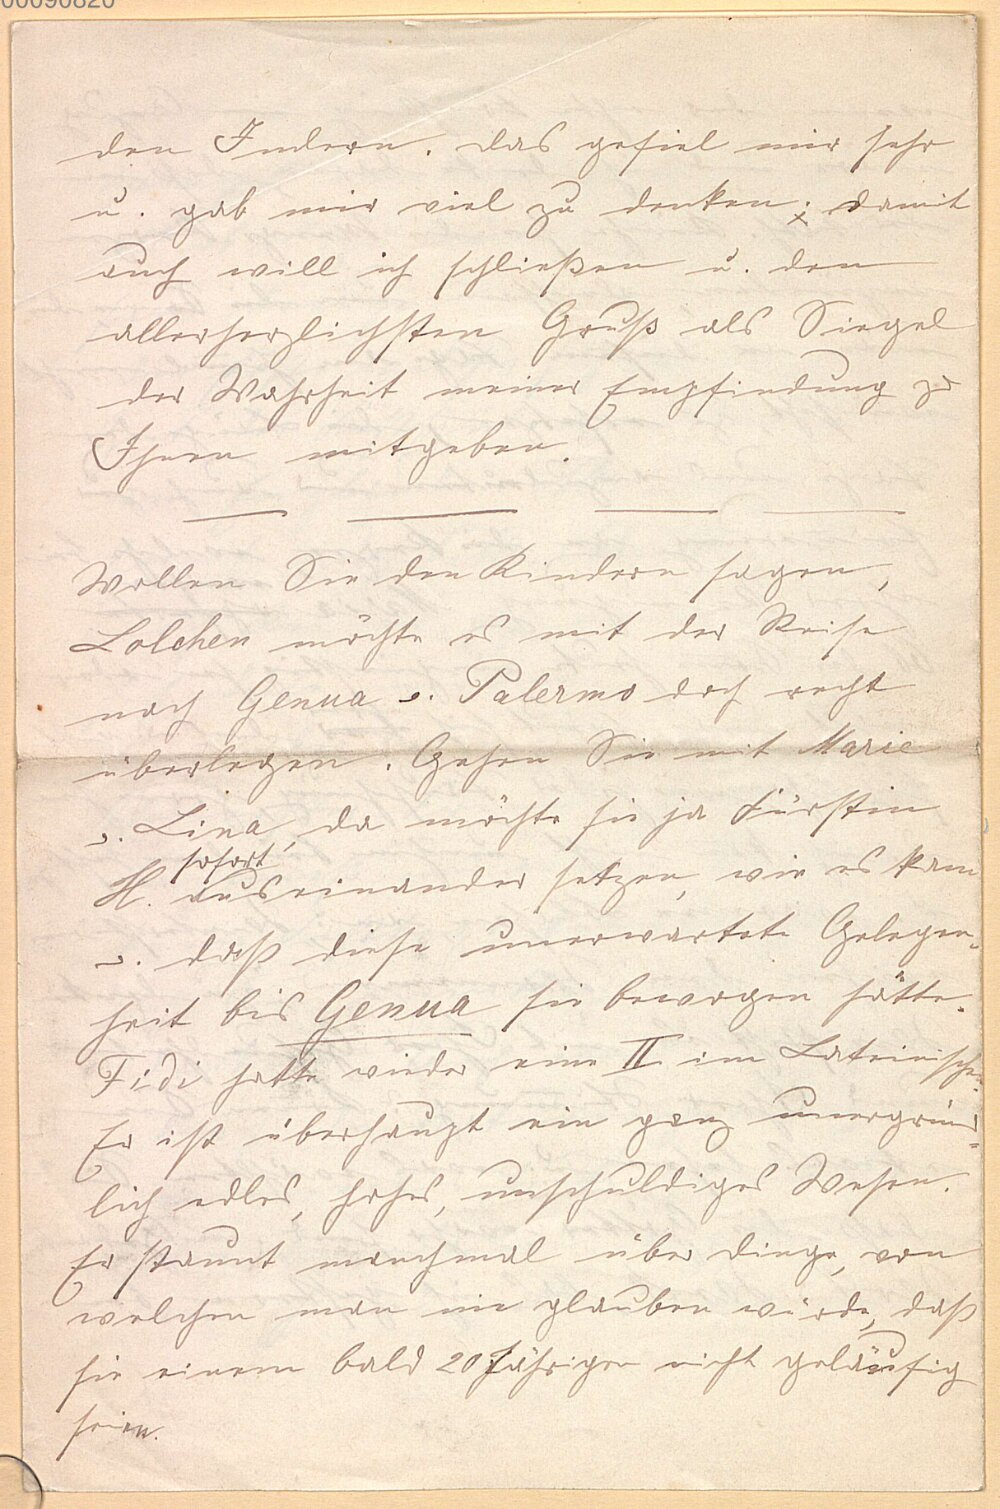 00090820
den Indern. das gefiel mir sehr
u. gab mir viel zu denken; damit
auch will ich schließen u. den
allerherzlichsten Gruß als Siegel
der Wahrheit meiner Empfindung zu
Ihnen mitgeben.
Wollen Sie den Kindern sagen,
Lolchen möchte es mit der Reise
nach Genua u. Palermo doch recht
überlegen. Gehen Sie mit Marie
u. Lina, da möchte sie ja Fürstin
sofort
H. auseinander setzen, wie es kam
u. daß diese unerwartete Gelegen-
heit bis Genua sie bewogen hätte.
Fidi hatte wieder eine II im Lateinischen.
Er ist überhaupt ein ganz unergründ-
lich edles, hohes, unschuldiges Wesen.
Er staunt manchmal über Dinge, von
welchen man nie glauben würde, daß
sie einem bald 20jährigen nicht geläufig
seien.